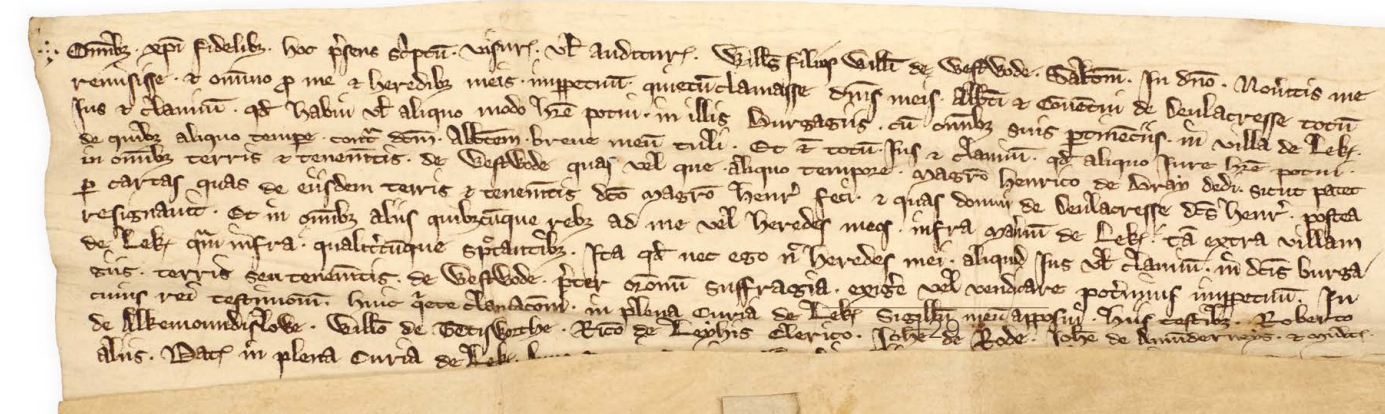 Omnibz . xpi fidelibz . hoc psens scptu . visur . vl auditur . Wills filius Willi de Westwode . Saltm . In dno . Noverits me
remisisse . et omnino p me et heredibz meis . imppetuu . quietuclamasse dnis meis . Abbti et Conventui de Deulacresse totu
Jus et clamiu . qd habui vl aliquo modo here potui . in illis Burgagiis . cu omibz suis ptinetiis . in villa de Lek .
de quibz aliquo tempe . cont dcm . Abbtem . breve meu tuli . Et totu Jus et clamiu . qd aliquo Jure here potui .
in omibz terris et tenemtis . de Westwode quas vel que aliquo tempore . Magro Henrico de Bray dedi . sicut patet
p cartas quas de eisdem terris et tenemtis dco Magro Henr feci . et quas domui de Deulacresse dcs Henr . postea
resignavit . Et in omibz aliis quibzcuque rebz ad me vel heredes meos . infra Maniu de Lek . ta extra villam
de Lek qm infra . qualitcuque sptantibz . Ita qd nec ego n heredes mei . aliquid Jus vl clamiu . in dcis burga
giis . terris seu tenemtis . de Westwode . pter oronu suffragia . exige vel vendicare potimus imppetuu . In
cuius rei testimoiu . huic qiete clamacoi . in plena Curia de Lek Sigillu meu apposui . hiis testibz . Roberto
de Alkemoundislowe . Willo de Tetisworthe . Rico de Leyhis Clerico . Johe de Rode . Johe de et
aliis . Dat in plena Curia de Lek